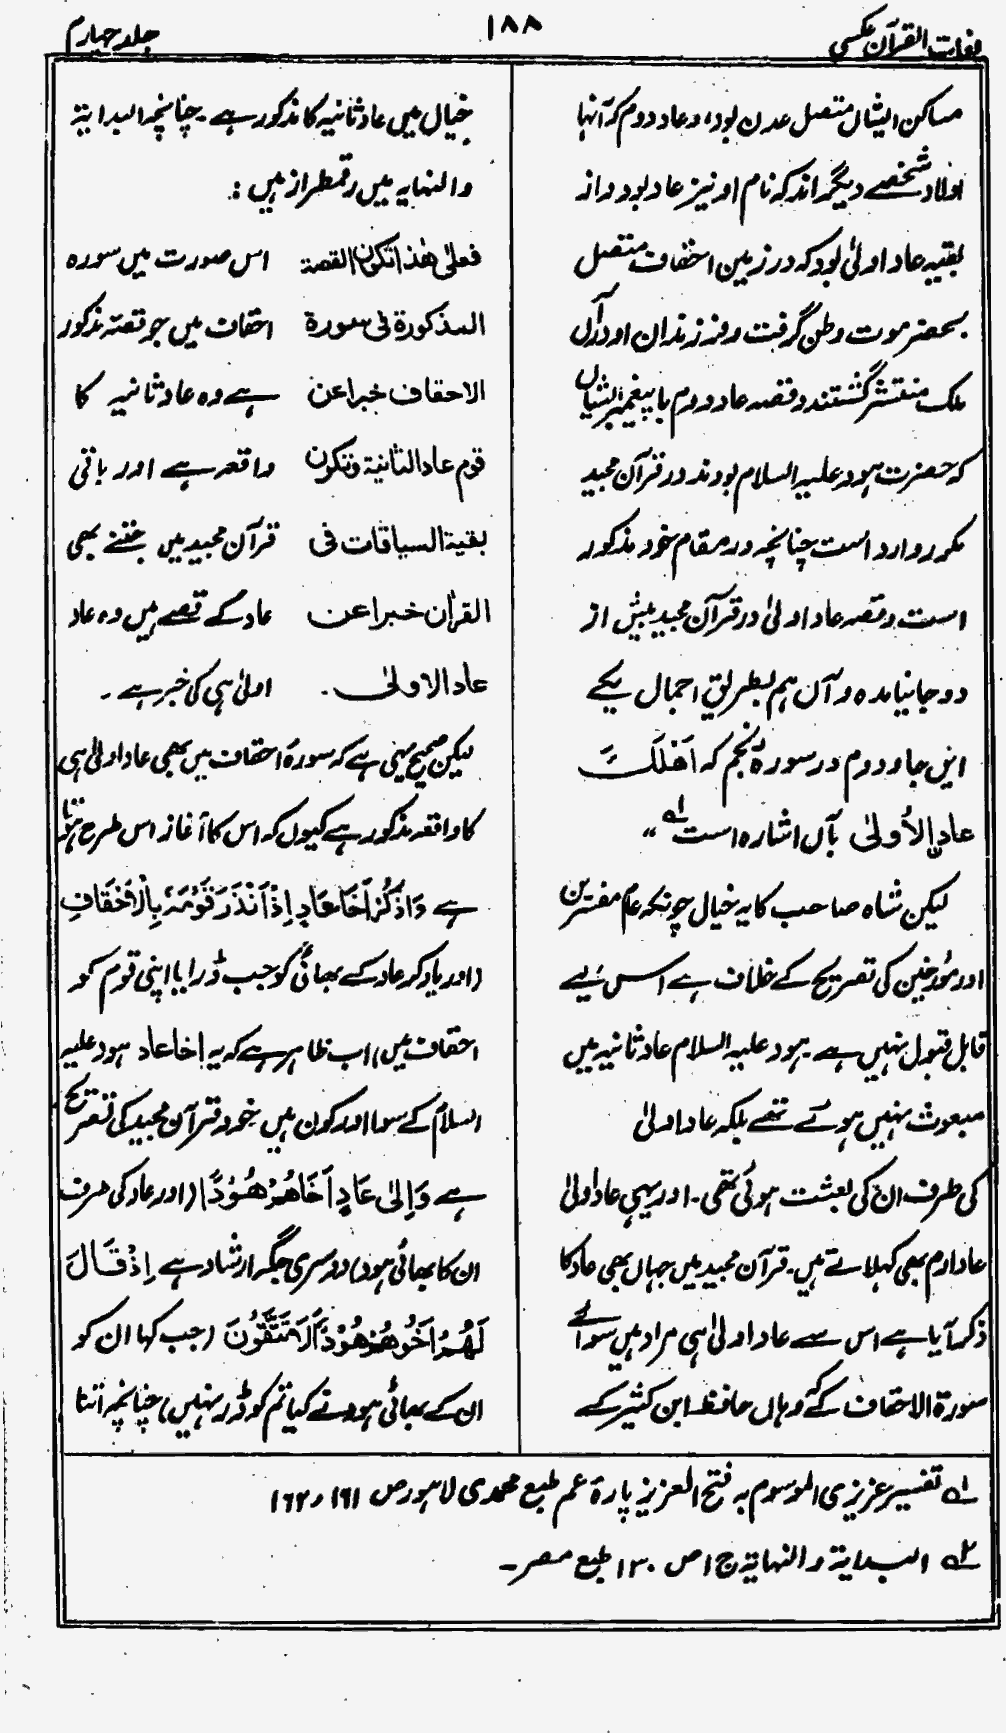 لغات القرآن عکسی
۱۸۸
جلد چہارم
مساکن ایشاں متصل عدن بود، و عاد دوم کہ آنہا
اولاد شخصے دیگر اند کہ نام او نیز عاد بود و از
بقیہ عاد اولیٰ بود کہ در زمین احقاف متصل
بحضرموت وطن گرفت و فرزندان او دراں
ملک منتشر گشتند و قصہ عاد دوم با پیغمبر ایشاں
کہ حضرت ہود علیہ السلام بودند در قرآن مجید
مکرر وارد است چنانچہ در مقام خود مذکور
است و قصہ عاد اولیٰ در قرآن مجید بیش از
دو جا نیامدہ و آن ہم بطریق اجمال یکے
ایں جا و دوم در سورۂ نجم کہ اَهْلَكَ
عادَاِۨلاُولیٰ بآں اشارہ است لہ"
لیکن شاہ صاحب کا یہ خیال چونکہ عام مفسرین
اور مؤرخین کی تصریح کے خلاف ہے اس لیے
قابل قبول نہیں ہے ۔ ہود علیہ السلام عاد ثانیہ میں
مبعوث نہیں ہوئے تھے بلکہ عاد اولیٰ
کی طرف ان کی بعثت ہوئی تھی ۔ اور یہی عاد اولیٰ
عاد ارم بھی کہلاتے ہیں ۔ قرآن مجید میں جہاں بھی عاد کا
ذکر آیا ہے اس سے عاد اولیٰ ہی مراد ہیں سوائے
سورۃ الاحقاف کے کہ وہاں حافظ ابن کثیر کے
خیال میں عاد ثانیہ کا مذکور ہے ۔ چنانچہ البدایۃ
والنہایہ میں رقمطراز ہیں :
فعلیٰ ھٰذا تکون القصة اس صورت میں سورہ
المذکورة فی سورة احقاف میں جو قصہ مذکور
الاحقاف خبرا عن ہے وہ عاد ثانیہ کا
قوم عاد الثانیة وتکون واقعہ ہے اور باقی
بقیة السیاقات فی قرآن مجید میں جتنے بھی
القراٰن خبرا عن عاد کے قصے ہیں وہ عاد
عاد الاولیٰ ۔ اولیٰ ہی کی خبر ہے ۔
لیکن صحیح یہی ہے کہ سورۂ احقاف میں بھی عاد اولیٰ ہی
کا واقعہ مذکور ہے کیوں کہ اس کا آغاز اس طرح ہوتا
ہے وَاذْكُرْ اَخَا عَادٍ اِذْ اَنْذَرَ قَوْمَهٗ بِالْاَحْقَافِ
(اور یاد کر عاد کے بھائی کو جب ڈرایا اپنی قوم کو
احقاف میں) اب ظاہر ہے کہ یہ اخا عاد ہود علیہ
السلام کے سوا اور کون ہیں خود قرآن مجید کی تصریح
ہے وَاِلیٰ عَادٍ اَخَاهُمْ هُوْدًا (اور عاد کی طرف
ان کا بھائی ہود) دوسری جگہ ارشاد ہے اِذْ قَالَ
لَهُمْ اَخُوْهُمْ هُوْدٌ اَلَا تَتَّقُوْنَ (جب کہا ان کو
ان کے بھائی ہود نے کیا تم کو ڈر نہیں) چنانچہ اتنا
۱ے تفسیر عزیزی الموسوم بہ فتح العزیز پارۂ عم طبع محمدی لاہور ص ۱۶۱ و ۱۶۲
۲ے البدایة والنہایة ج ۱ ص ۱۳۰ طبع مصر ۔